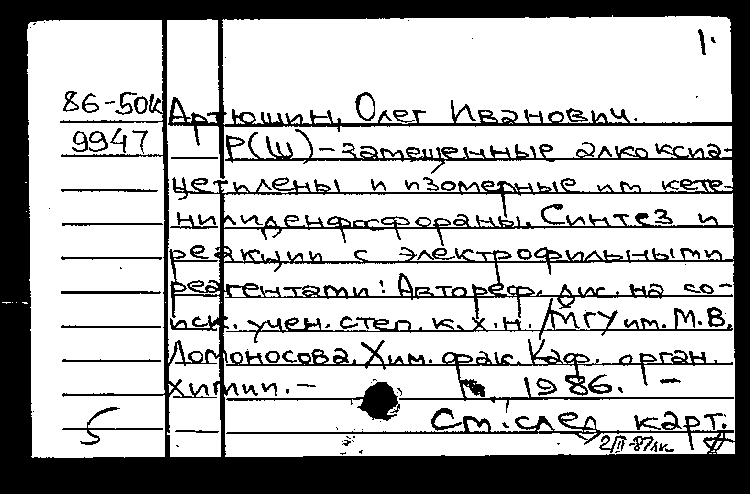 1.
86-50к Артюшин, Олег Иванович.
9947 P(III)-замещенные алкоксиа-
цетилены и изомерные им кете-
нилиденфосфораны. Синтез и
реакции с электрофильными
реагентами: Автореф. дис. на со-
иск. учен. степ. к.х.н. /МГУ им. М.В.
Ломоносова. Хим. фак. Каф. орган.
химии. – М., 1986. –
5 См. след. карт.
2/II-87